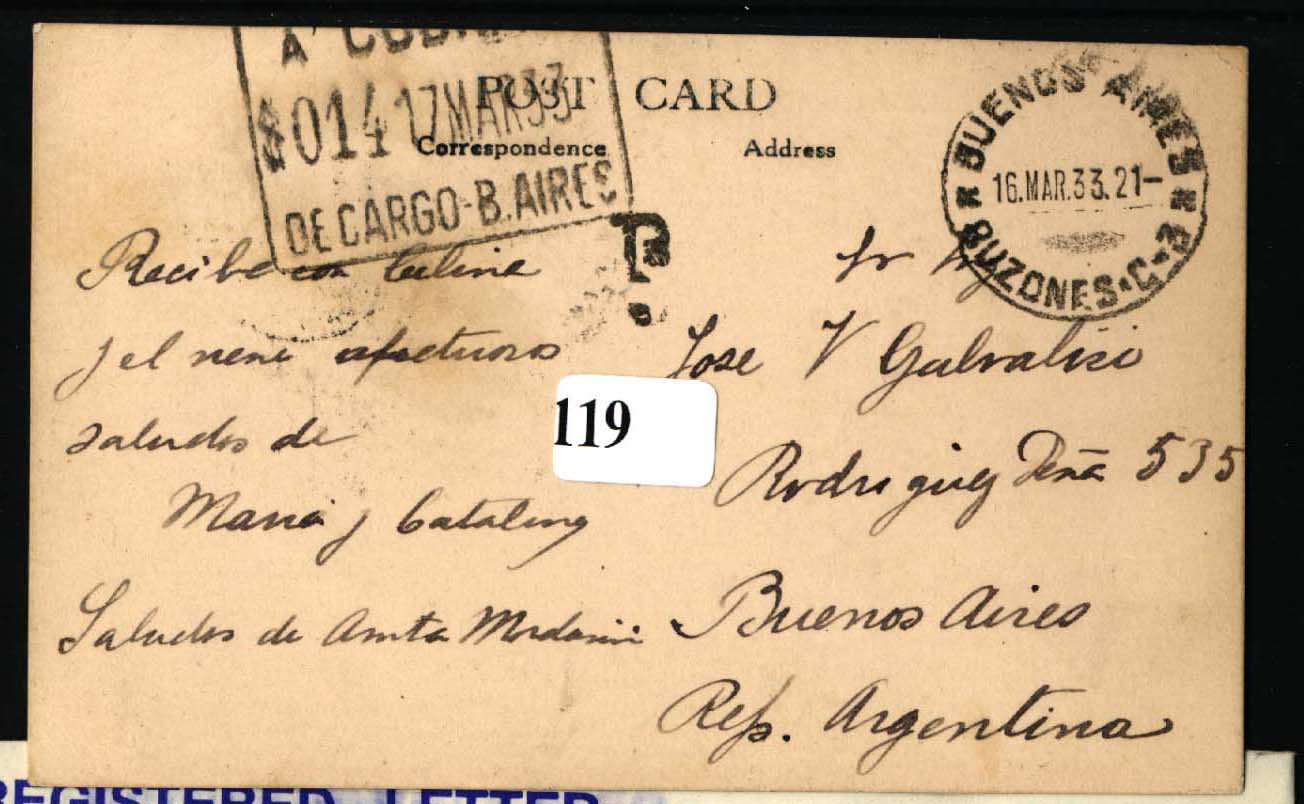 A COBRAR
$014 17 MAR 33
DE CARGO-B.AIRES
POST CARD
Correspondence
Address
BUENOS AIRES
16.MAR.33.21-
BUZONES·C-2
T
Recibe con
y el nene afectuosos
saludos de
Maria y Catalina
Saludos de Anita
119
Sr
Jose V Galvalisi
Rodriguez Peña 535
Buenos Aires
Rep. Argentina
REGISTERED LETTER